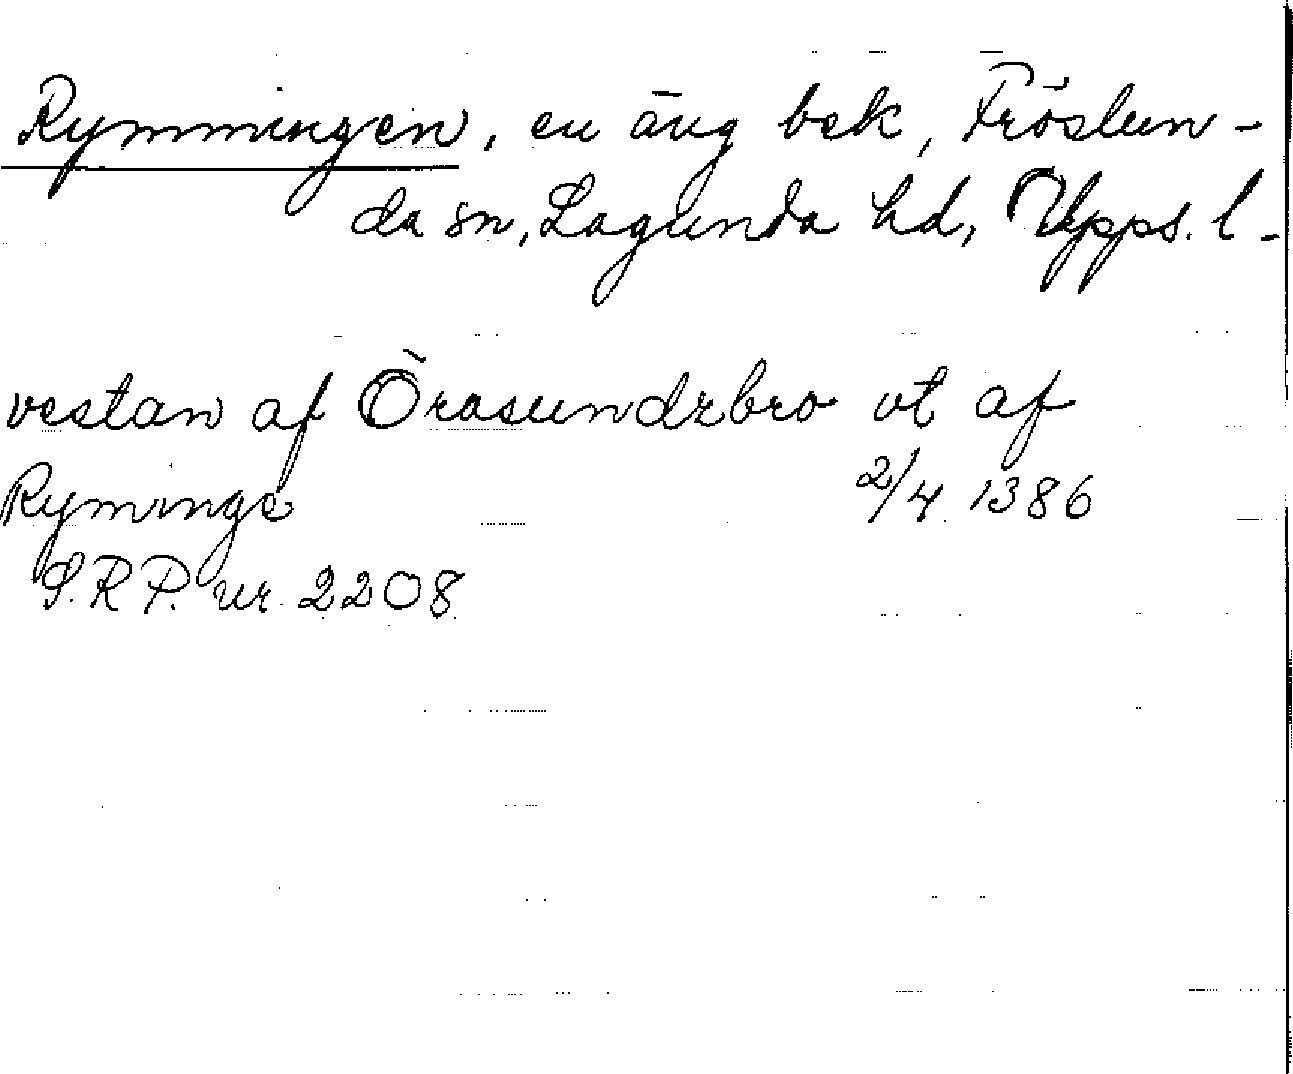 Rymmingen, en äng bek, Fröslun-
da sn, Lagunda hd, Upps. l.
vestan af Örasundzbro vt af
Ryminge 2/4 1386
S.R.P. nr. 2208